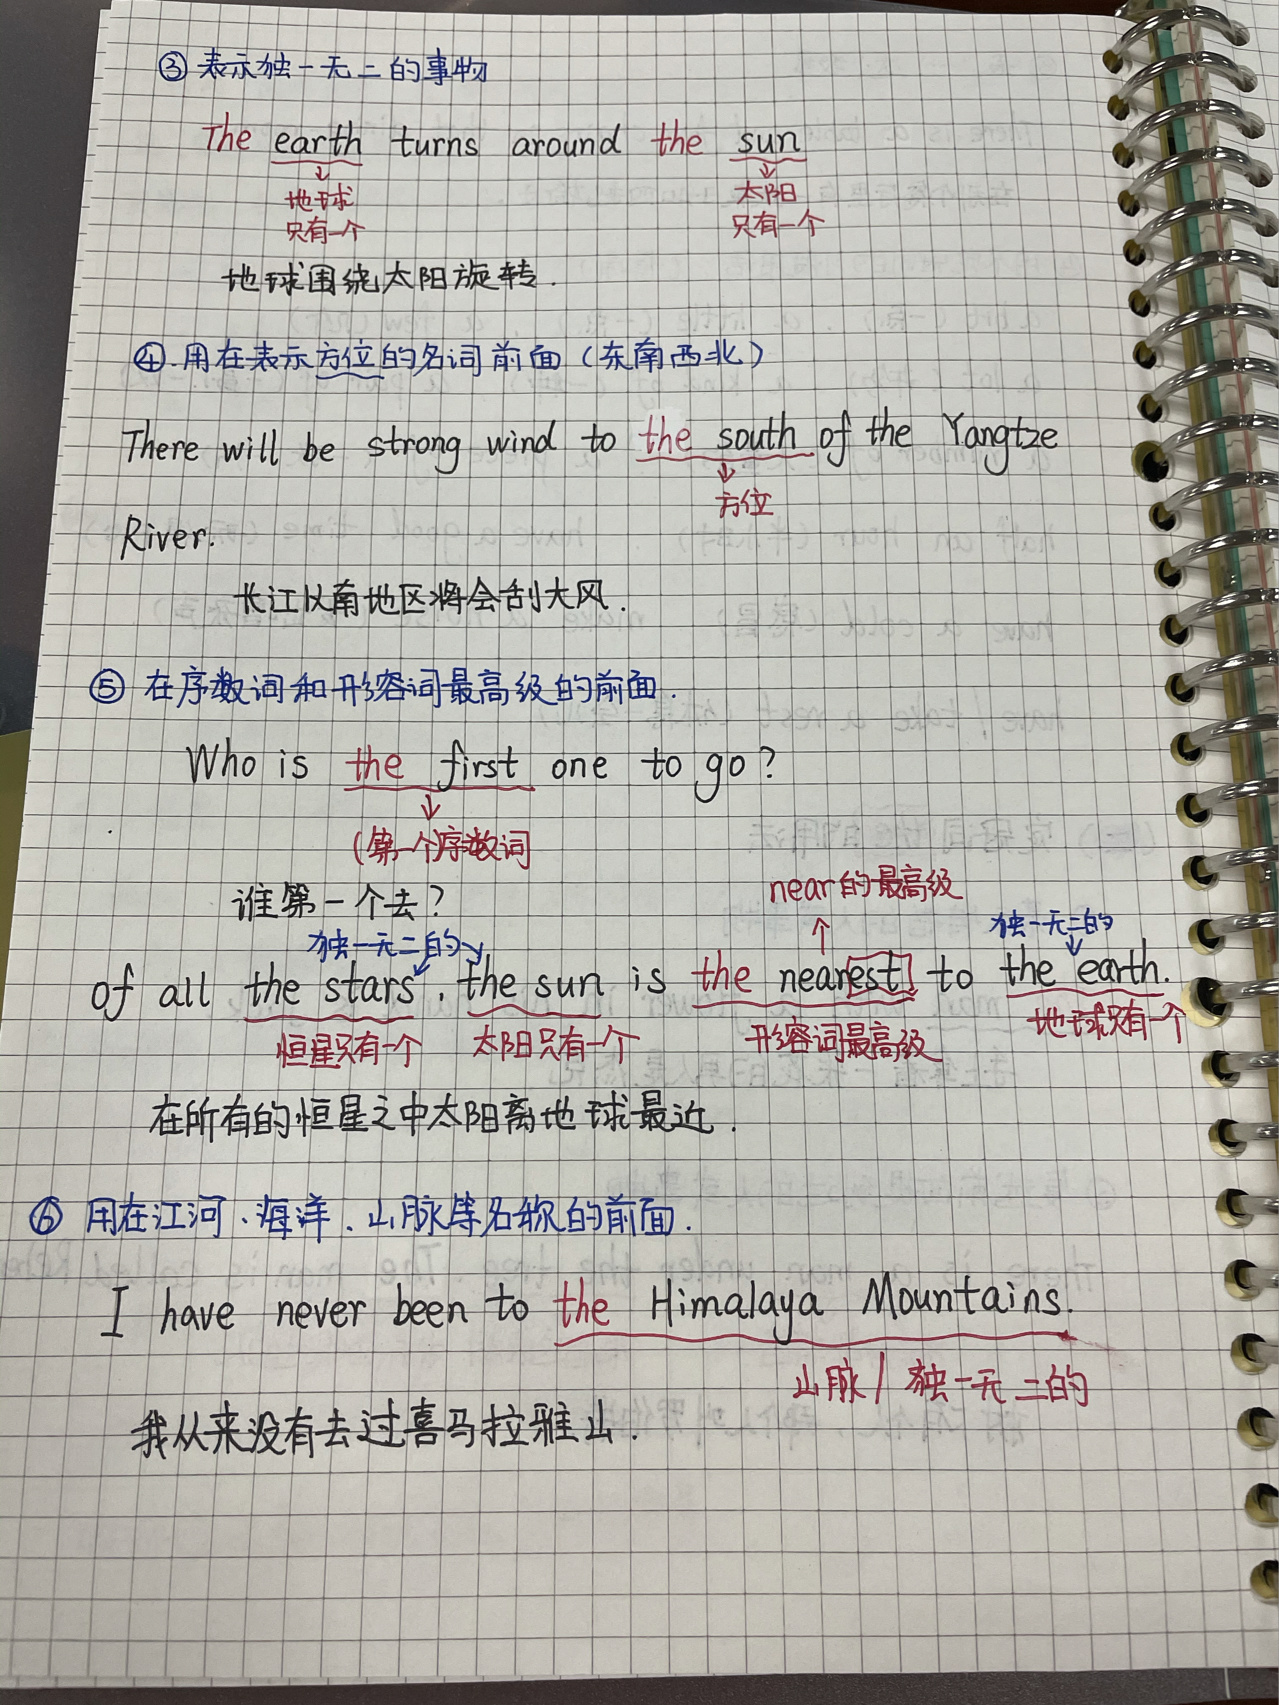 ③ 表示独一无二的事物
The earth turns around the sun
地球 太阳
只有一个 只有一个
地球围绕太阳旋转.
④.用在表示方位的名词前面(东南西北)
There will be strong wind to the south of the Yangtze
方位
River.
长江以南地区将会刮大风.
⑤ 在序数词和形容词最高级的前面.
Who is the first one to go?
(第一个序数词
谁第一个去?
near的最高级
独一无二的 独一无二的
of all the stars, the sun is the nearest to the earth.
恒星只有一个 太阳只有一个 形容词最高级 地球只有一个
在所有的恒星之中太阳离地球最近.
⑥ 用在江河、海洋、山脉等名称的前面.
I have never been to the Himalaya Mountains.
山脉/独一无二的
我从来没有去过喜马拉雅山.